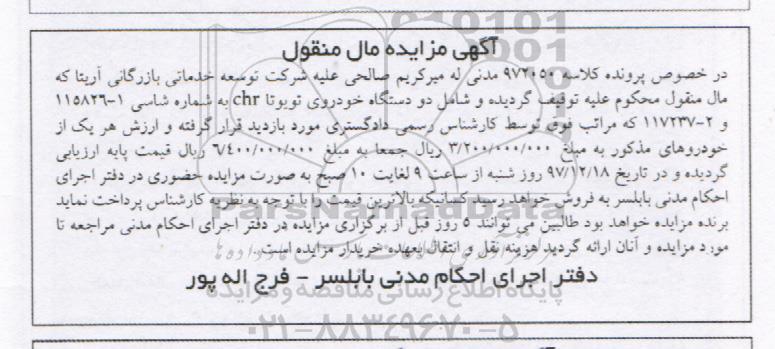 آگهی مزایده مال منقول
در خصوص پرونده کلاسه ۹۷۲۰۵۰ مدنی له میرکریم صالحی علیه شرکت توسعه خدماتی بازرگانی آریتا که
مال منقول محکوم علیه توقیف گردیده و شامل دو دستگاه خودروی تویوتا chr به شماره شاسی ۱-۱۱۵۸۲۶
و ۲-۱۱۷۲۳۷ که مراتب فوق توسط کارشناس رسمی دادگستری مورد بازدید قرار گرفته و ارزش هر یک از
خودروهای مذکور به مبلغ ۳/۲۰۰/۰۰۰/۰۰۰ ریال جمعا به مبلغ ۶/۴۰۰/۰۰۰/۰۰۰ ریال قیمت پایه ارزیابی
گردیده و در تاریخ ۹۷/۱۲/۱۸ روز شنبه از ساعت ۹ لغایت ۱۰ صبح به صورت مزایده حضوری در دفتر اجرای
احکام مدنی بابلسر به فروش خواهد رسید کسانیکه بالاترین قیمت را با توجه به نظریه کارشناس پرداخت نماید
برنده مزایده خواهد بود طالبین می توانند ۵ روز قبل از برگزاری مزایده در دفتر اجرای احکام مدنی مراجعه تا
مورد مزایده و آنان ارائه گردید هزینه نقل و انتقال بعهده خریدار مزایده است.
دفتر اجرای احکام مدنی بابلسر - فرج اله پور
ParsNamadData
پایگاه اطلاع رسانی مناقصه و مزایده
۰۲۱-۸۸۳۴۹۶۷۰-۵